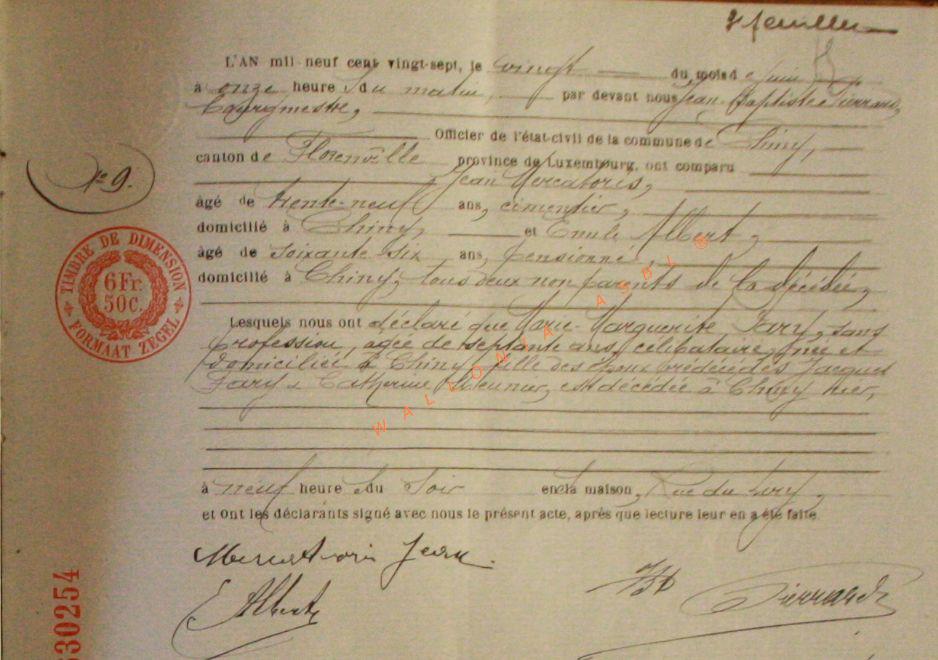 7 feuilles
L'AN mil neuf cent vingt-sept, le vingt du mois de juin
à onze heures du matin, par devant nous Jean-Baptiste Pierrard,
Bourgmestre,
Officier de l'état-civil de la commune de Chiny,
canton de Florenville province de Luxembourg, ont comparu
Jean Mercatoris,
N° 9.
âgé de trente-neuf ans, cimentier,
domicilié à Chiny, et Emile Albert,
âgé de soixante-six ans, pensionné,
domicilié à Chiny, tous deux non parents de la décédée,
TIMBRE DE DIMENSION
6 Fr. 50 C.
FORMAAT ZEGEL
Lesquels nous ont déclaré que Marie-Marguerite Jary, sans
profession, âgée de septante ans, célibataire, née et
domiciliée à Chiny, fille des époux prédécédés Jacques
Jary & Catherine Meunier, est décédée à Chiny hier,
WALLONIA ASBL ©
à neuf heures du soir en sa maison, Rue du
et ont les déclarants signé avec nous le présent acte, après que lecture leur en a été faite.
Mercatoris Jean
E Albert
JB Pierrard
330254